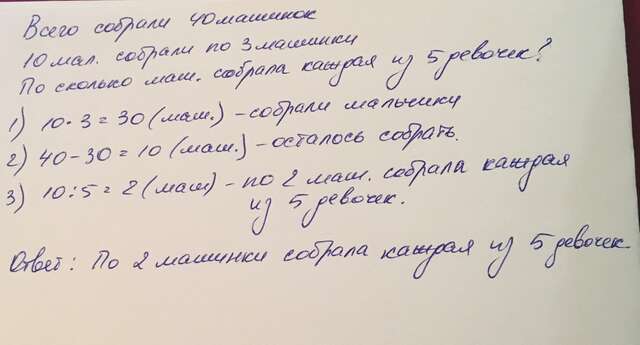 Всего собрали 40 машинок
10 мал. собрали по 3 машинки
По сколько маш. собрала каждая из 5 девочек?
1) 10·3=30 (маш.) – собрали мальчики
2) 40-30=10 (маш.) – осталось собрать.
3) 10:5=2 (маш) – по 2 маш. собрала каждая
из 5 девочек.
Ответ: По 2 машинки собрала каждая из 5 девочек